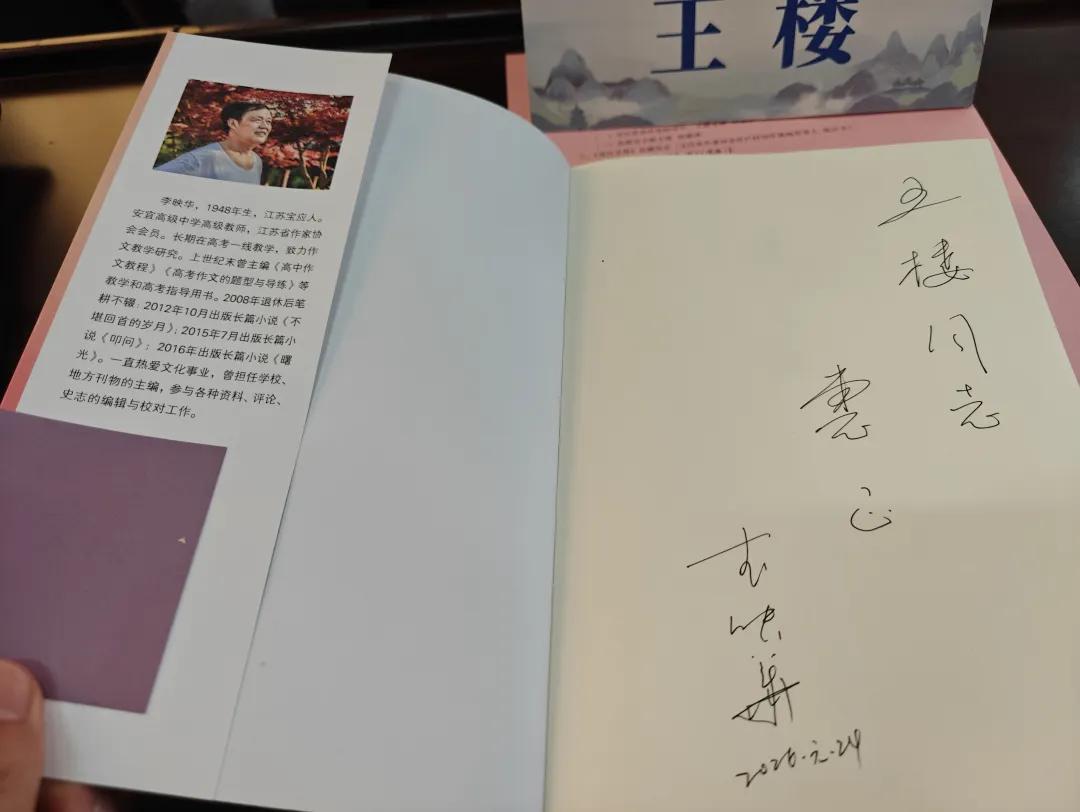 王 楼
李映华，1948年生，江苏宝应人。
安宜高级中学高级教师，江苏省作家协
会会员。长期在高考一线教学，致力作
文教学研究。上世纪末曾主编《高中作
文教程》《高考作文的题型与导练》等
教学和高考指导用书。2008年退休后笔
耕不辍：2012年10月出版长篇小说《不
堪回首的岁月》；2015年7月出版长篇小
说《叩问》；2016年出版长篇小说《曙
光》。一直热爱文化事业，曾担任学校、
地方刊物的主编，参与各种资料、评论、
史志的编辑与校对工作。
王楼同志
惠正
李映华
2026.元.24